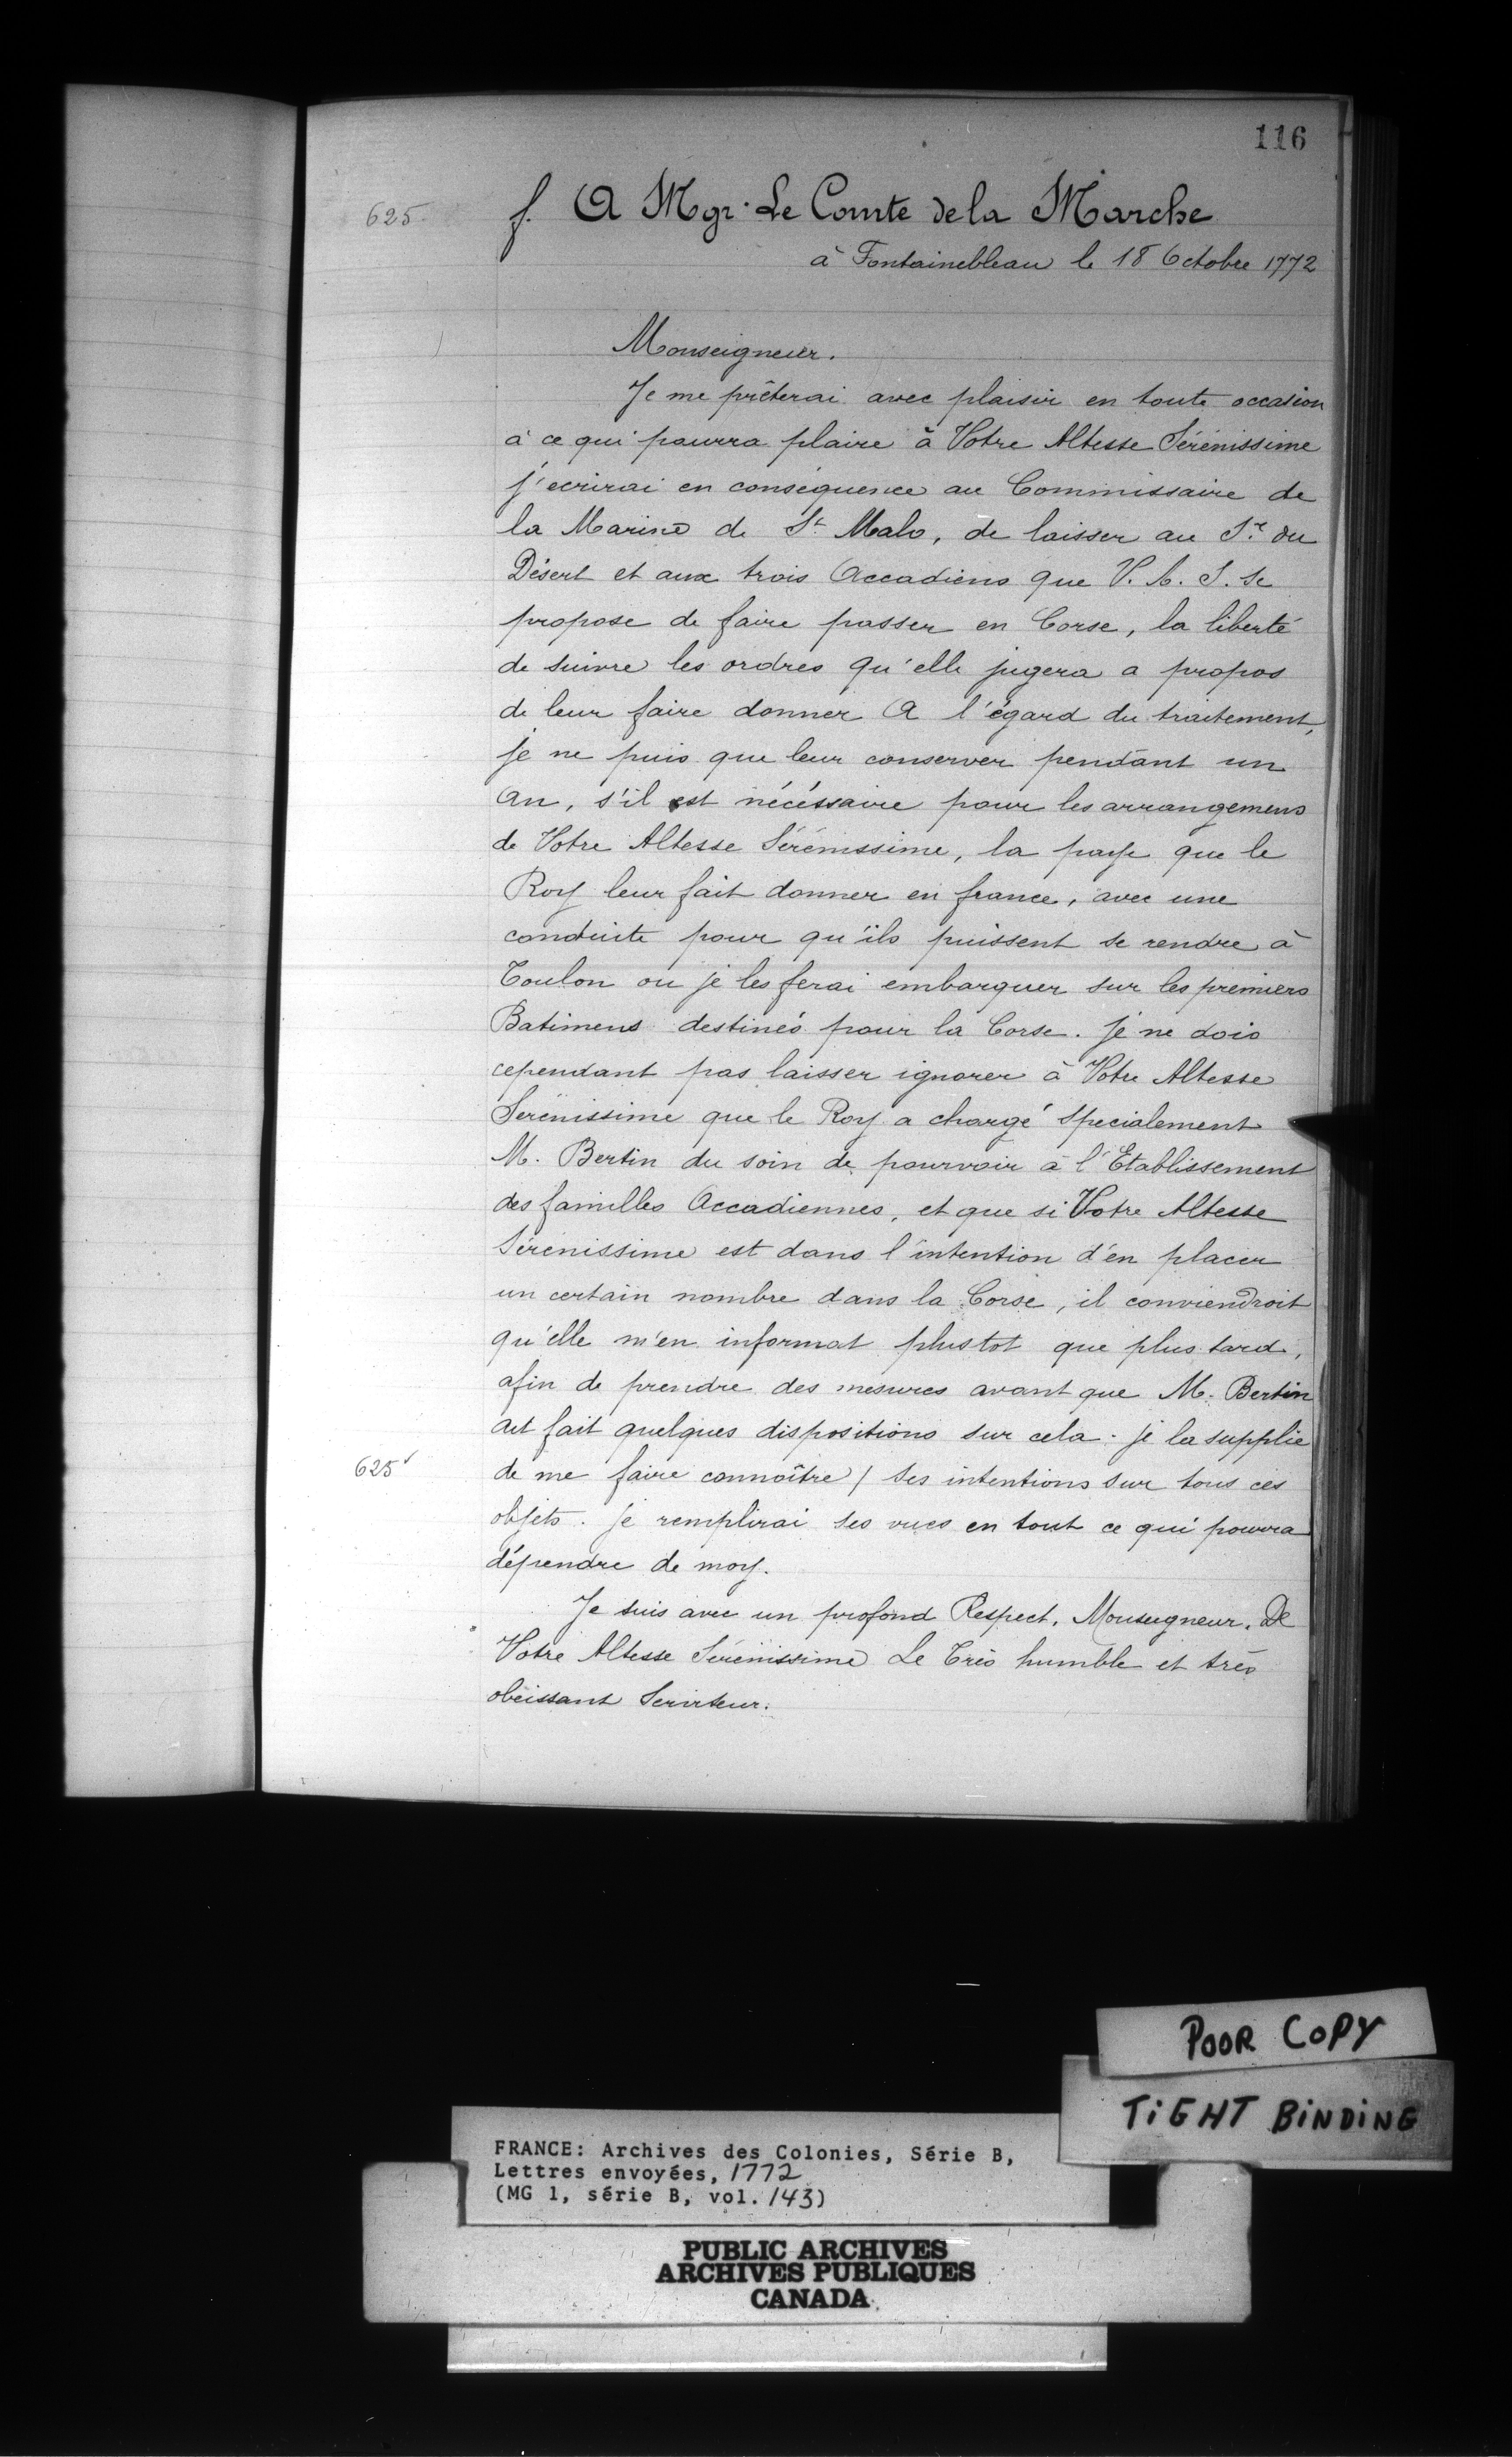 116
625.
f. A Mgr. Le Comte de la Marche
à Fontainebleau le 18 Octobre 1772
Monseigneur.
Je me prêterai avec plaisir en toute occasion
à ce qui pourra plaire à Votre Altesse Sérénissime
j'ecrirai en conséquence au Commissaire de
la Marine de St. Malo, de laisser au Sr. du
Désert et aux trois Accadiens que V. A. S. se
propose de faire passer en Corse, la liberté
de suivre les ordres qu'elle jugera a propos
de leur faire donner A l'égard du traitement,
je ne puis que leur conserver pendant un
An, s'il est nécéssaire pour les arrangemens
de Votre Altesse Sérénissime, la paye que le
Roy leur fait donner en france, avec une
conduite pour qu'ils puissent se rendre à
Toulon ou je les ferai embarquer sur les premiers
Batimens destinés pour la Corse. Je ne dois
cependant pas laisser ignorer à Votre Altesse
Serénissime que le Roy a chargé specialement
M. Bertin du soin de pourvoir à l'Etablissement
des familles Accadiennes, et que si Votre Altesse
Sérénissime est dans l'intention d'en placer
un certain nombre dans la Corse, il conviendroit
qu'elle m'en informat plustot que plus tard,
afin de prendre des mesures avant que M. Bertin
ait fait quelques dispositions sur cela. je la supplie
625v
de me faire connoître / ses intentions sur tous ces
objets. je remplirai ses vues en tout ce qui pourra
dépendre de moy.
Je suis avec un profond Respect, Monseigneur, De
Votre Altesse Serénissime Le Très humble et très
obeissant Serviteur.
POOR COPY
TiGHT BiNDiNG
FRANCE: Archives des Colonies, Série B,
Lettres envoyées, 1772
(MG 1, série B, vol. 143)
PUBLIC ARCHIVES
ARCHIVES PUBLIQUES
CANADA